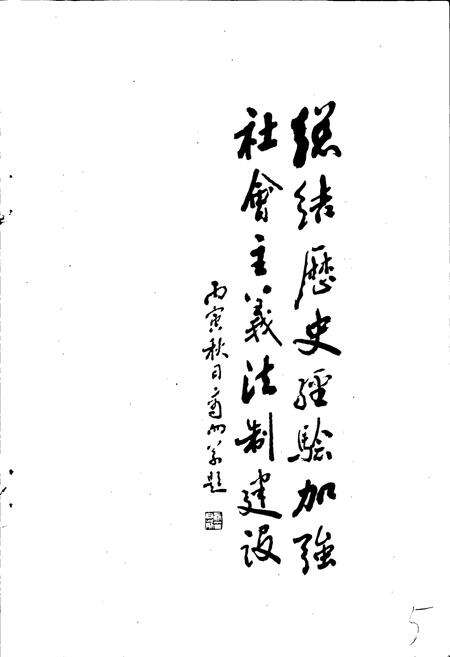 總結歷史經驗加強
社會主義法制建設
丙寅秋日
題
5